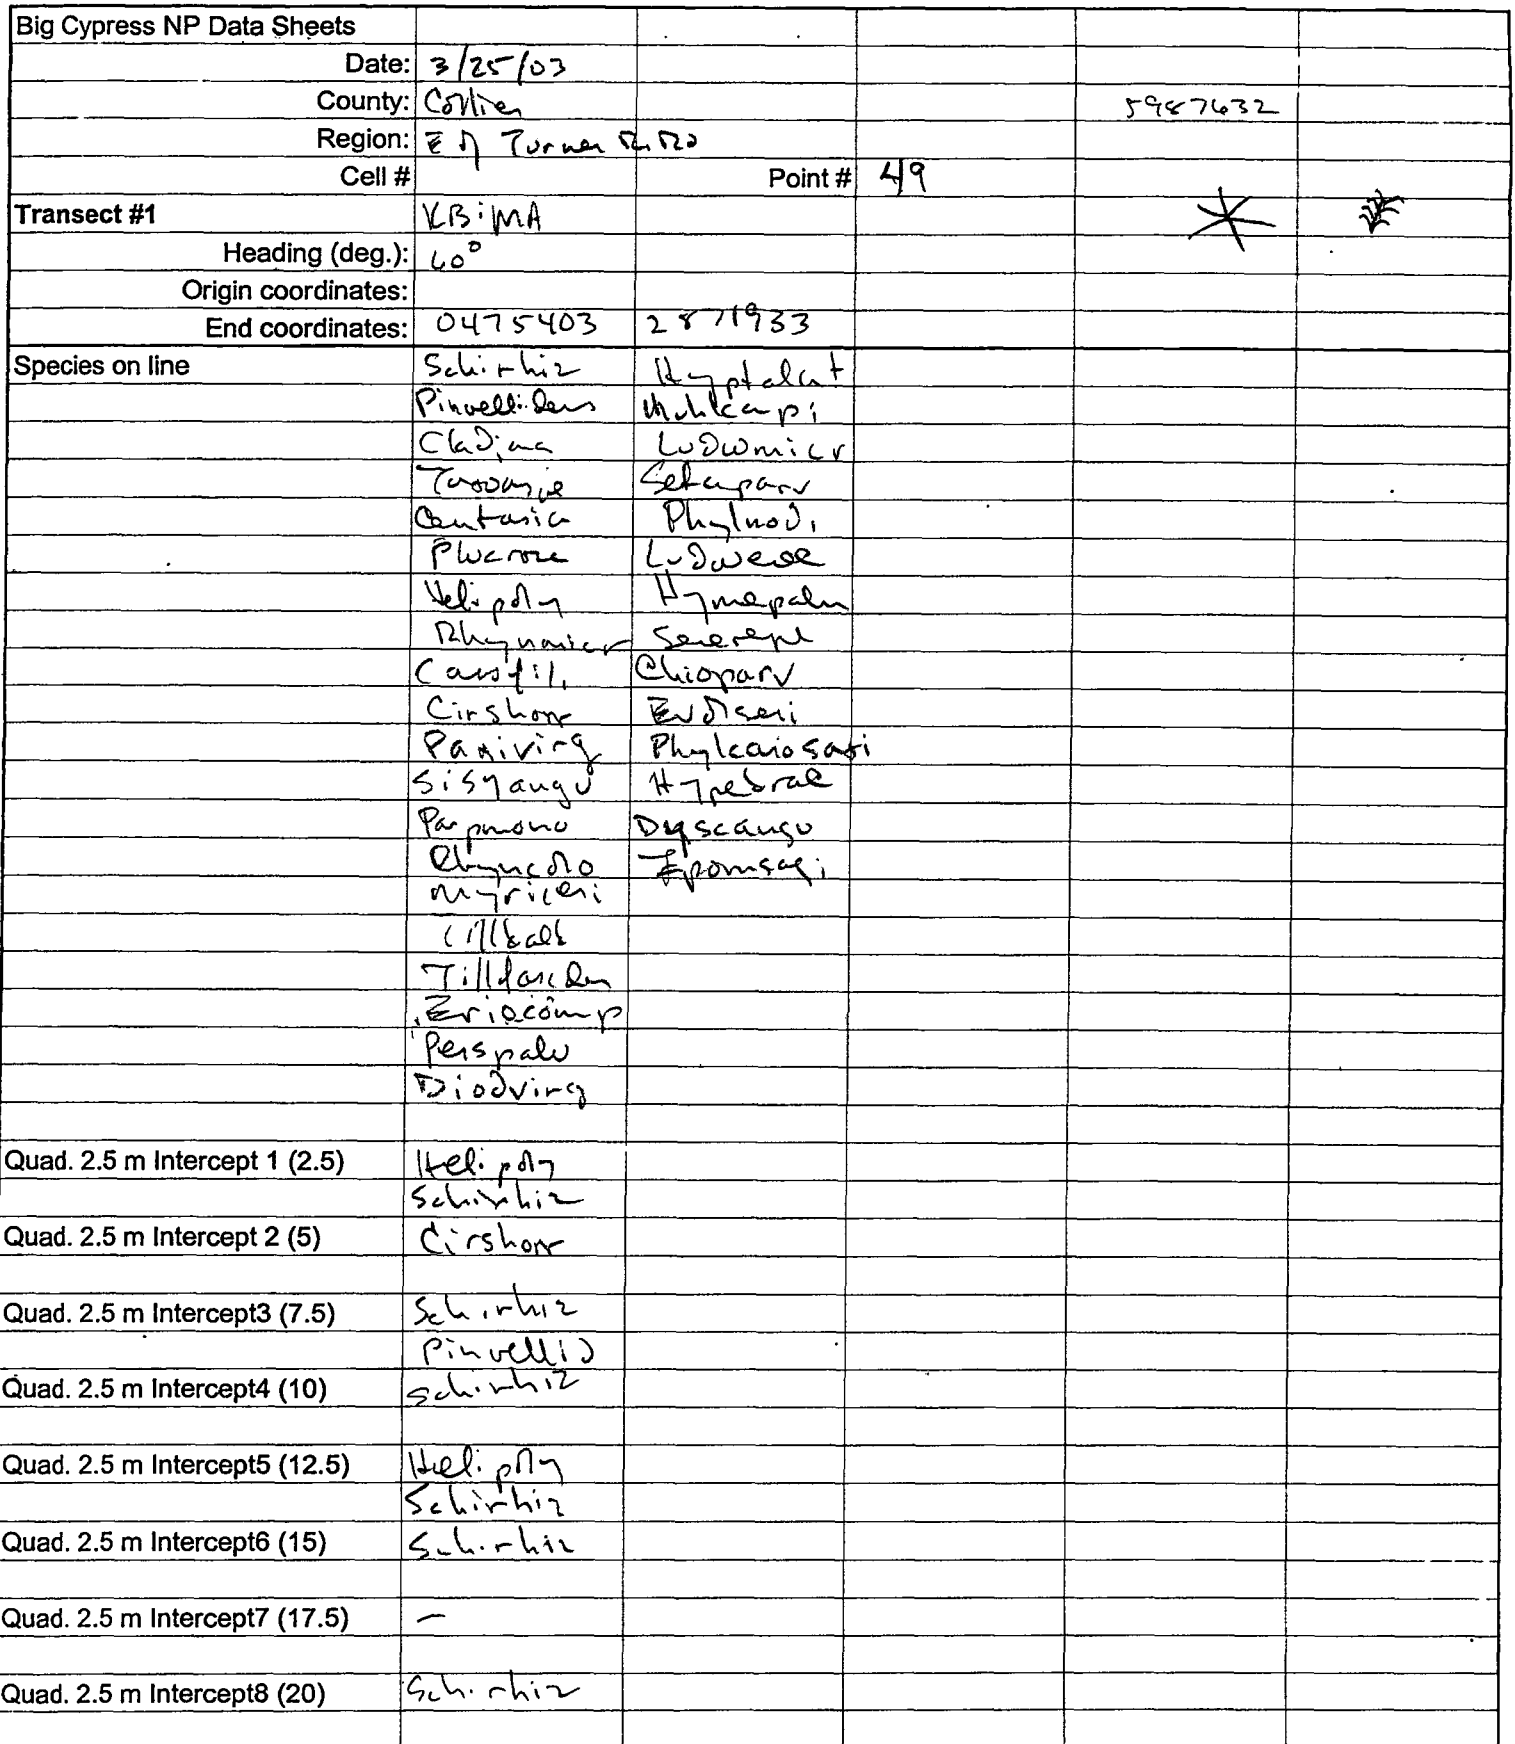 Big Cypress NP Data Sheets
Date: 3/25/03
County: Collier 5987632
Region: E of Turner Ri Rd
Cell # Point # 49
Transect #1 KB:MA
Heading (deg.): 60°
Origin coordinates:
End coordinates: 0475403 2871933
Species on line Schirhiz Hyptalat
Pinuelli Dens Muhlcapi
Cladjma Ludwmicr
Taxoasce Setaparv
Centasia Phylnodi
Plucrose Ludwrepe
Helipoly Hymepalm
Rhynmicr Serrepe
Cassfili Chioparv
Cirshorr Evolseri
Panivirg Phylcaro saxi
Sisyangu Hypebrac
Paspmono Dyscangu
Rhyncolo Ipomsagi
Myriceri
Tillbalb
Tillfasc Den
Eriocomp
Perspalu
Diodvirg
Quad. 2.5 m Intercept 1 (2.5) Helipoly
Schirhiz
Quad. 2.5 m Intercept 2 (5) Cirshorr
Quad. 2.5 m Intercept3 (7.5) Schirhiz
Pinuelli D
Quad. 2.5 m Intercept4 (10) Schirhiz
Quad. 2.5 m Intercept5 (12.5) Helipoly
Schirhiz
Quad. 2.5 m Intercept6 (15) Schirhiz
Quad. 2.5 m Intercept7 (17.5) —
Quad. 2.5 m Intercept8 (20) Schirhiz